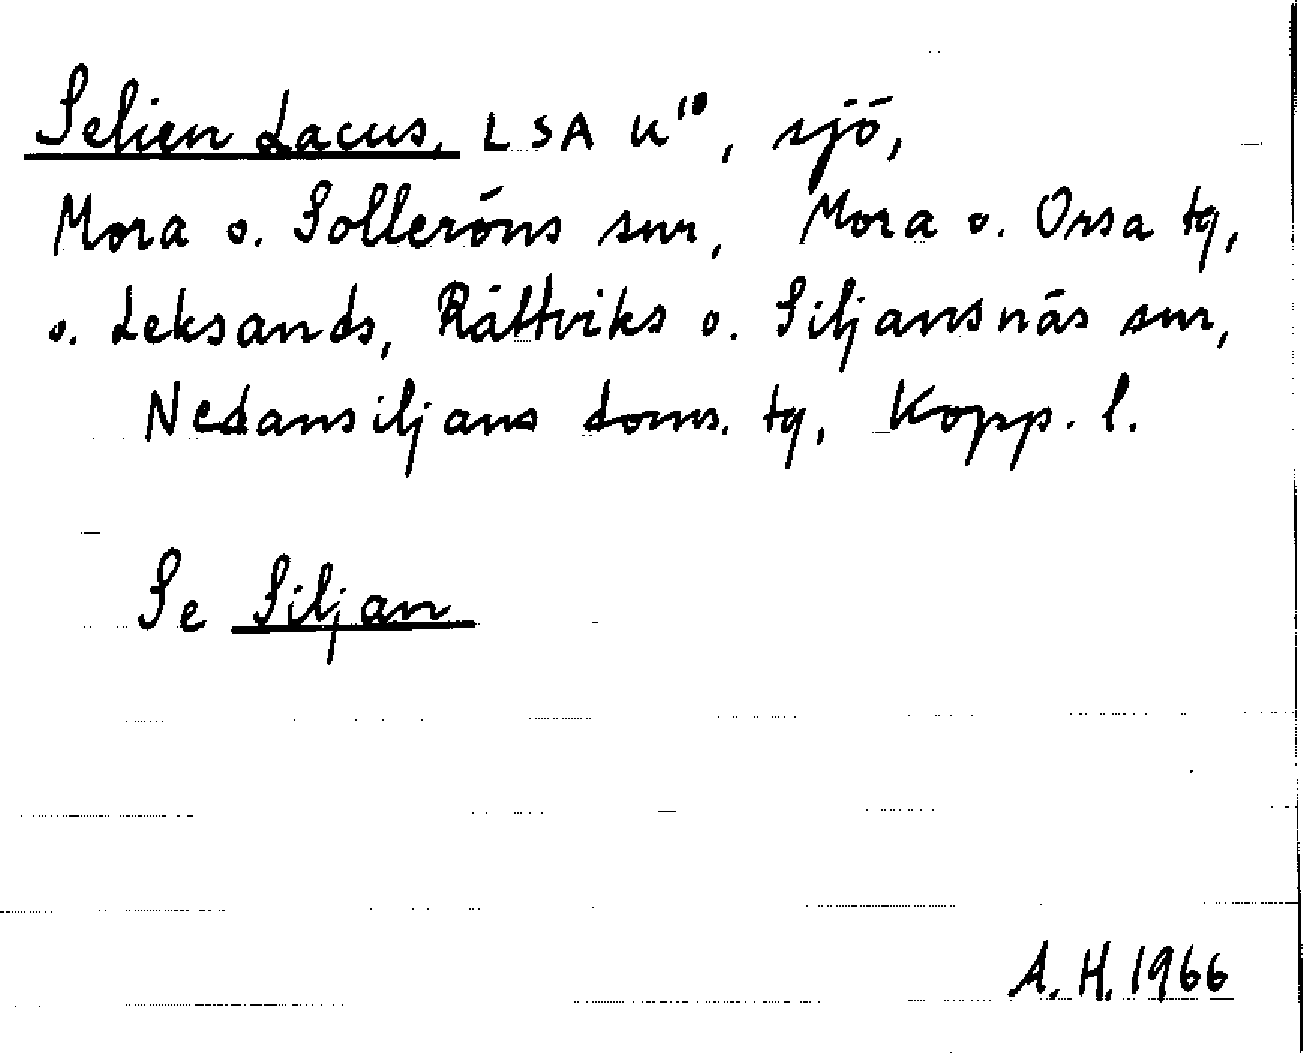 Selien Lacus, LSA K¹⁰, sjö,
Mora o. Solleröns snr, Mora o. Orsa tg,
o. Leksands, Rättviks o. Siljansnäs snr,
Nedansiljans doms. tg, Kopp. l.
Se Siljan
A. H. 1966